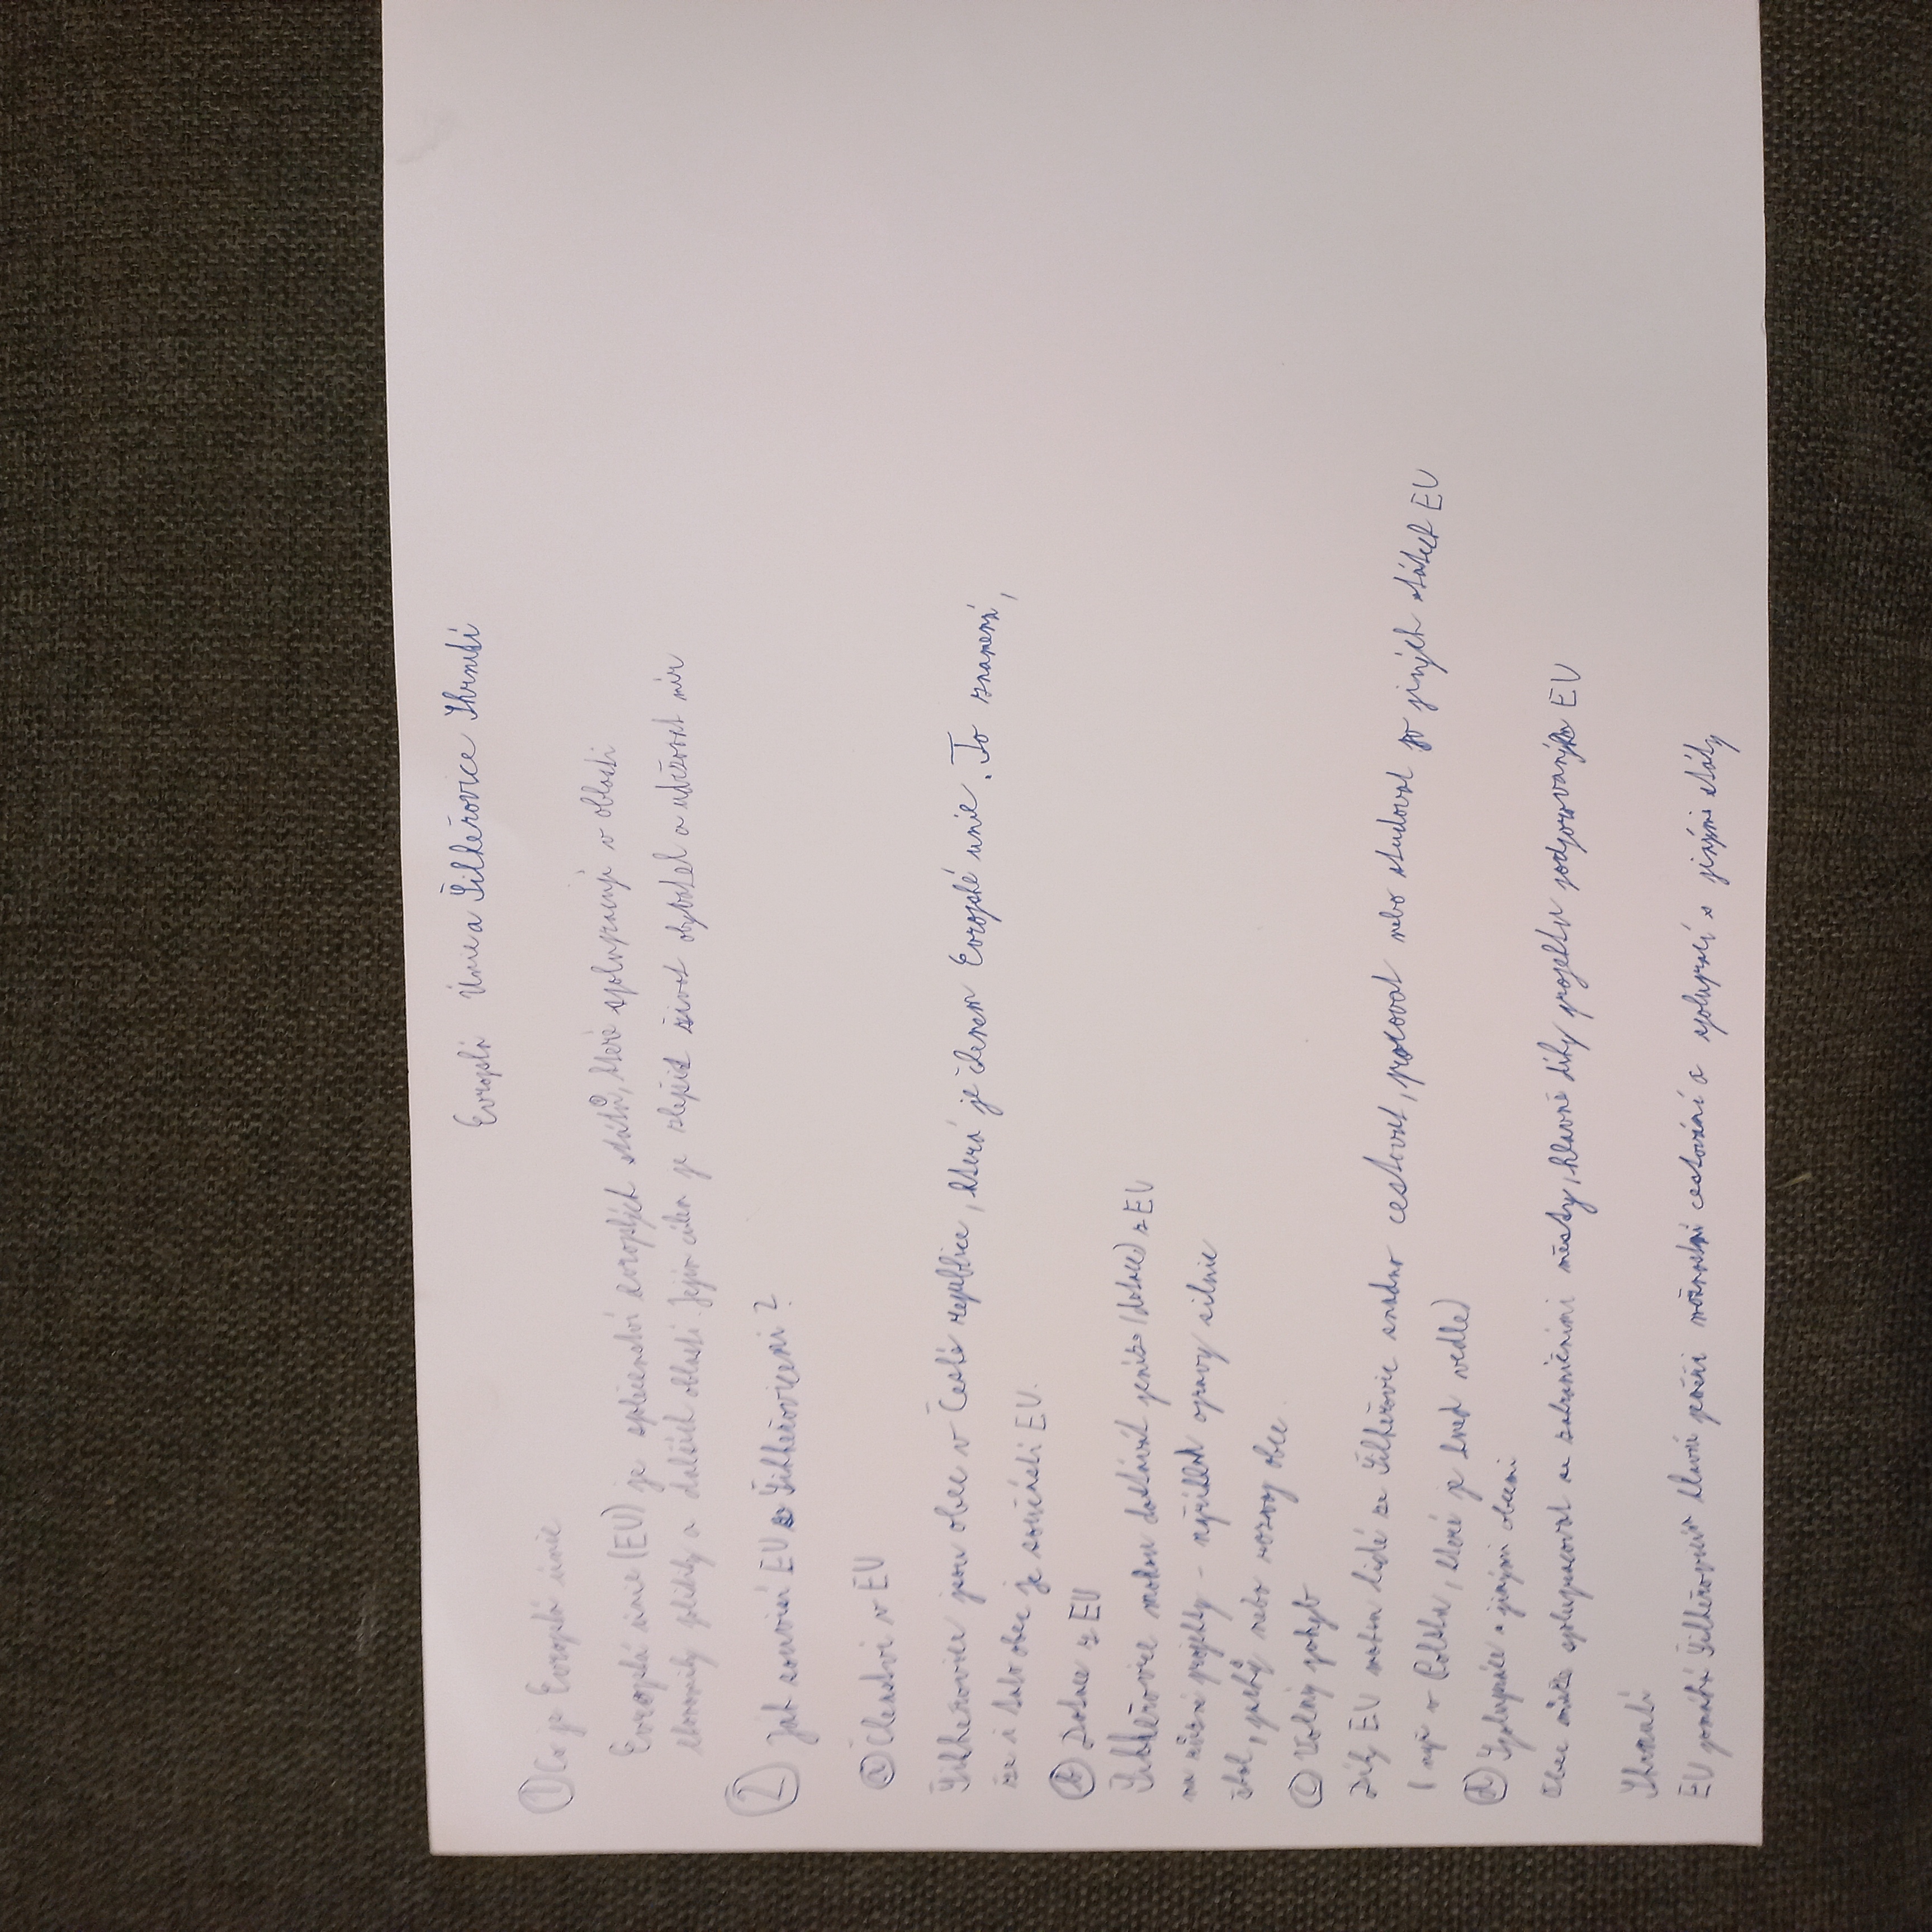 Evropská Únie a Šilheřovice Shrnutí
① Co je Evropská unie
Evropská unie (EU) je společenství evropských států, které spolupracují v oblasti
ekonomiky politiky a dalších oblastí. Jejím cílem je zlepšit život obyvatel a udržovat mír
② Jak souvisí EU se Šilheřovicemi?
ⓐ Členství v EU
Šilheřovice jsou obec v České republice, která je členem Evropské unie. To znamená,
že i tato obec je součástí EU.
ⓑ Dotace z EU
Šilheřovice mohou dostávat peníze (dotace) z EU
na různé projekty - například opravy silnic
škol, parků nebo rozvoj obce.
ⓒ Volný pohyb
Díky EU mohou lidé ze Šilheřovic snadno cestovat, pracovat nebo studovat po jiných státech EU
(např v Polsku, které je hned vedle)
ⓓ Spolupráce s jinými obcemi
Obec může spolupracovat se zahraničními městy, hlavně díky projektům podporovaným EU
Shrnutí
EU pomáhá Šilheřovicím hlavně penězi možnostmi cestování a spoluprací s jinými státy